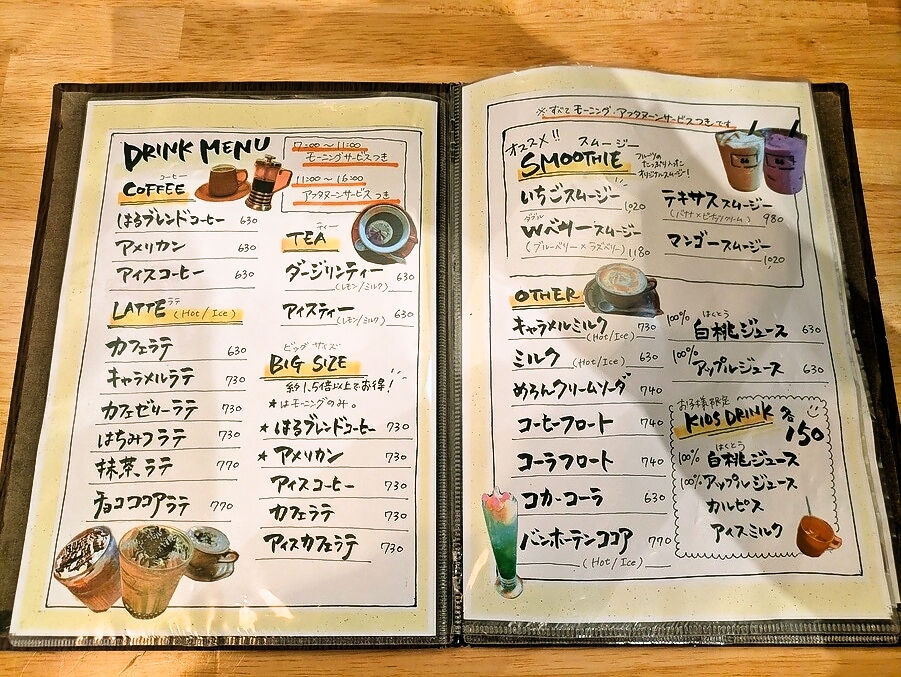 DRINK MENU
7:00〜11:00
モーニングサービスつき
11:00〜16:00
アフタヌーンサービスつき
コーヒー
COFFEE
はるブレンドコーヒー 630
アメリカン 630
アイスコーヒー 630
LATTE ラテ (Hot/Ice)
カフェラテ 630
キャラメルラテ 730
カフェゼリーラテ 730
はちみつラテ 730
抹茶ラテ 770
チョコココアラテ 770
ティー
TEA
ダージリンティー 630
(レモン/ミルク)
アイスティー 630
(レモン/ミルク)
ビッグサイズ
BIG SIZE
約1.5倍以上でお得!
★はモーニングのみ。
★はるブレンドコーヒー 730
★アメリカン 730
アイスコーヒー 730
カフェラテ 730
アイスカフェラテ 730
※すべてモーニング・アフタヌーンサービスつきです
オススメ!!
スムージー
SMOOTHIE
フルーツの
たっぷり入った
オリジナルスムージー!
いちごスムージー 1,020
ダブル
Wベリースムージー
(ブルーベリー×ラズベリー) 1,180
テキサススムージー
(バナナ×ピーナツクリーム) 980
マンゴースムージー
1,020
OTHER
キャラメルミルク 730
(Hot/Ice)
ミルク (Hot/Ice) 630
めろんクリームソーダ 740
コーヒーフロート 740
コーラフロート 740
コカ・コーラ 630
バンホーテンココア 770
(Hot/Ice)
はくとう
100% 白桃ジュース 630
100% アップルジュース 630
お子様限定
KIDS DRINK 各150
はくとう
100% 白桃ジュース
100% アップルジュース
カルピス
アイスミルク